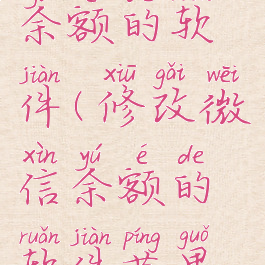 余额的软
jiàn xiū gǎi wēi
件(修改微
xìn yú é de
信余额的
ruǎn jiàn píng guǒ
软件苹果